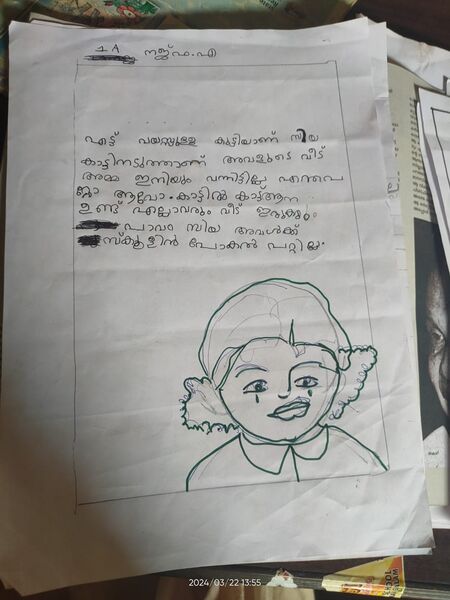 1 A നജ്ഫ.എ
എട്ട് വയസ്സുള്ള കുട്ടിയാണ് സിയ
കാട്ടിനടുത്താണ് അവളുടെ വീട്
അമ്മ ഇനിയും വന്നിട്ടില്ല എന്തപ
ജോ ആവോ. കാട്ടിൽ കാട്ടാന
ഉണ്ട് എല്ലാവരും വീട് ഇരുക്കും
പാവം സിയ അവൾക്ക്
സ്കൂളിൻ പോകൽ പറ്റില്ല.
2024/03/22 13:55